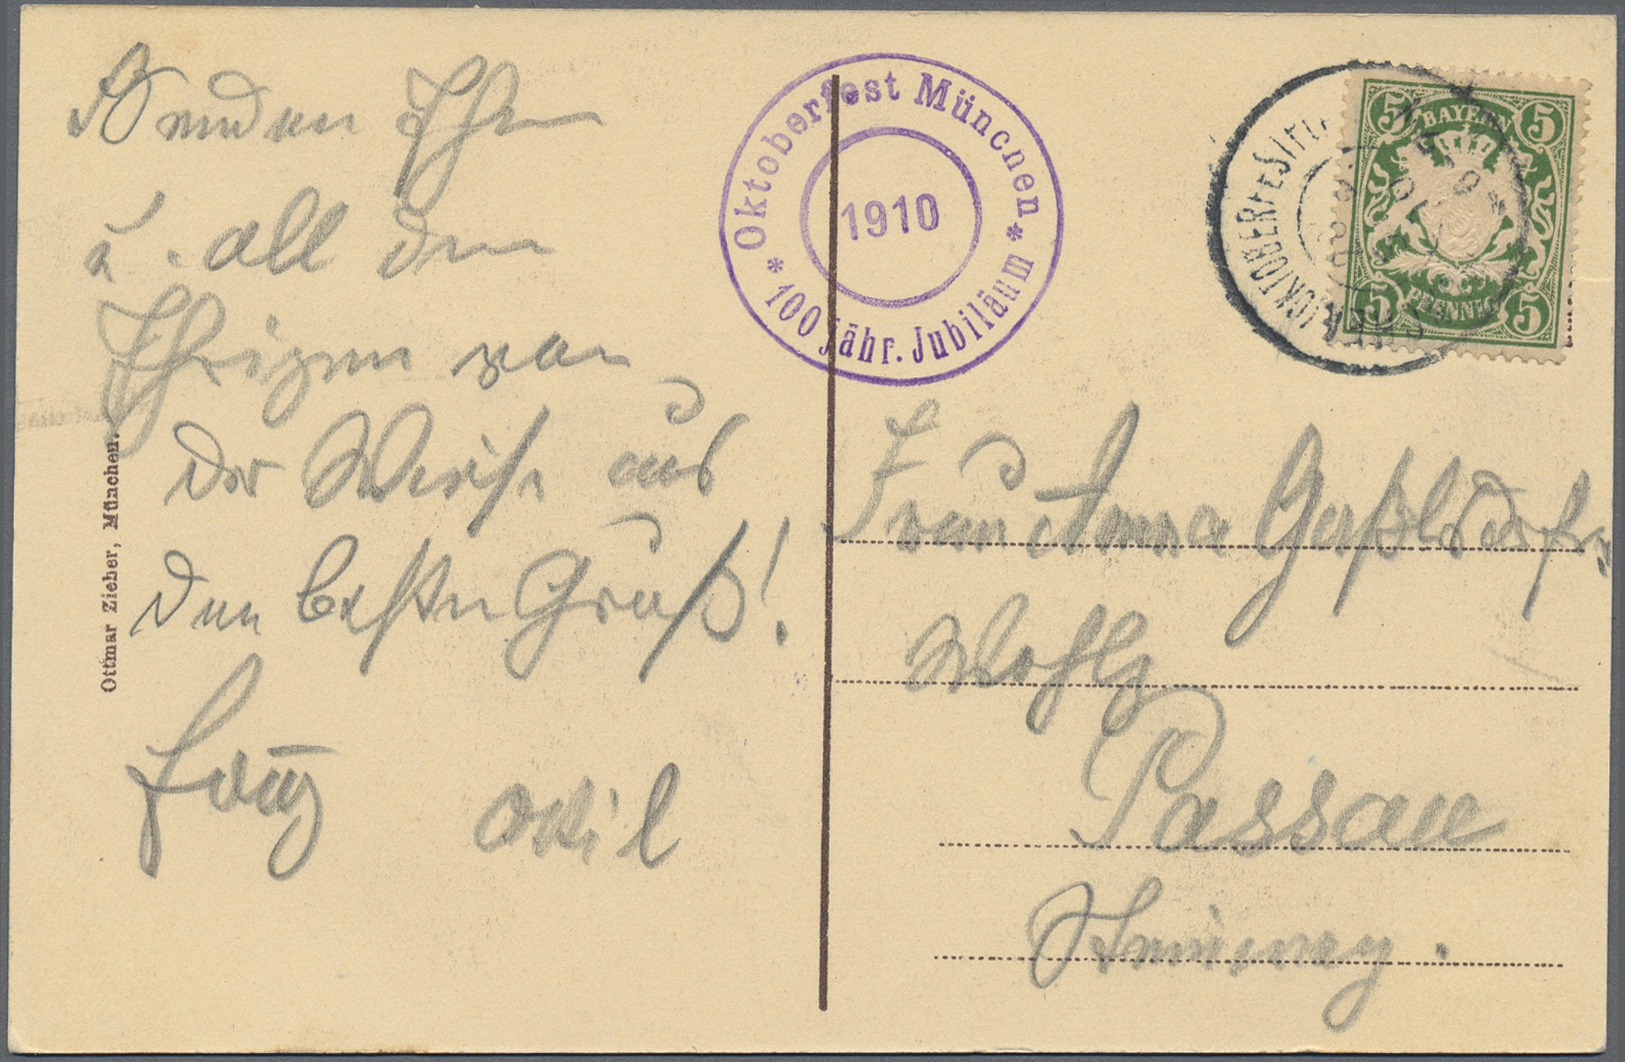 Senden Ihn
u. all den
Ihrigen von
der Wiese aus
den besten Gruß!
Ottmar Zieher, München.
* Oktoberfest München *
1910
100 jähr. Jubiläum
OKTOBERFEST
BAYERN
5 5
PFENNIG
5 5
Frau Anna
Wohlg
Passau